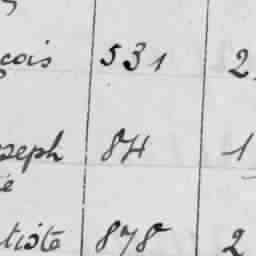 çois 531 2
seph 84 1
ie
tiste 878 2